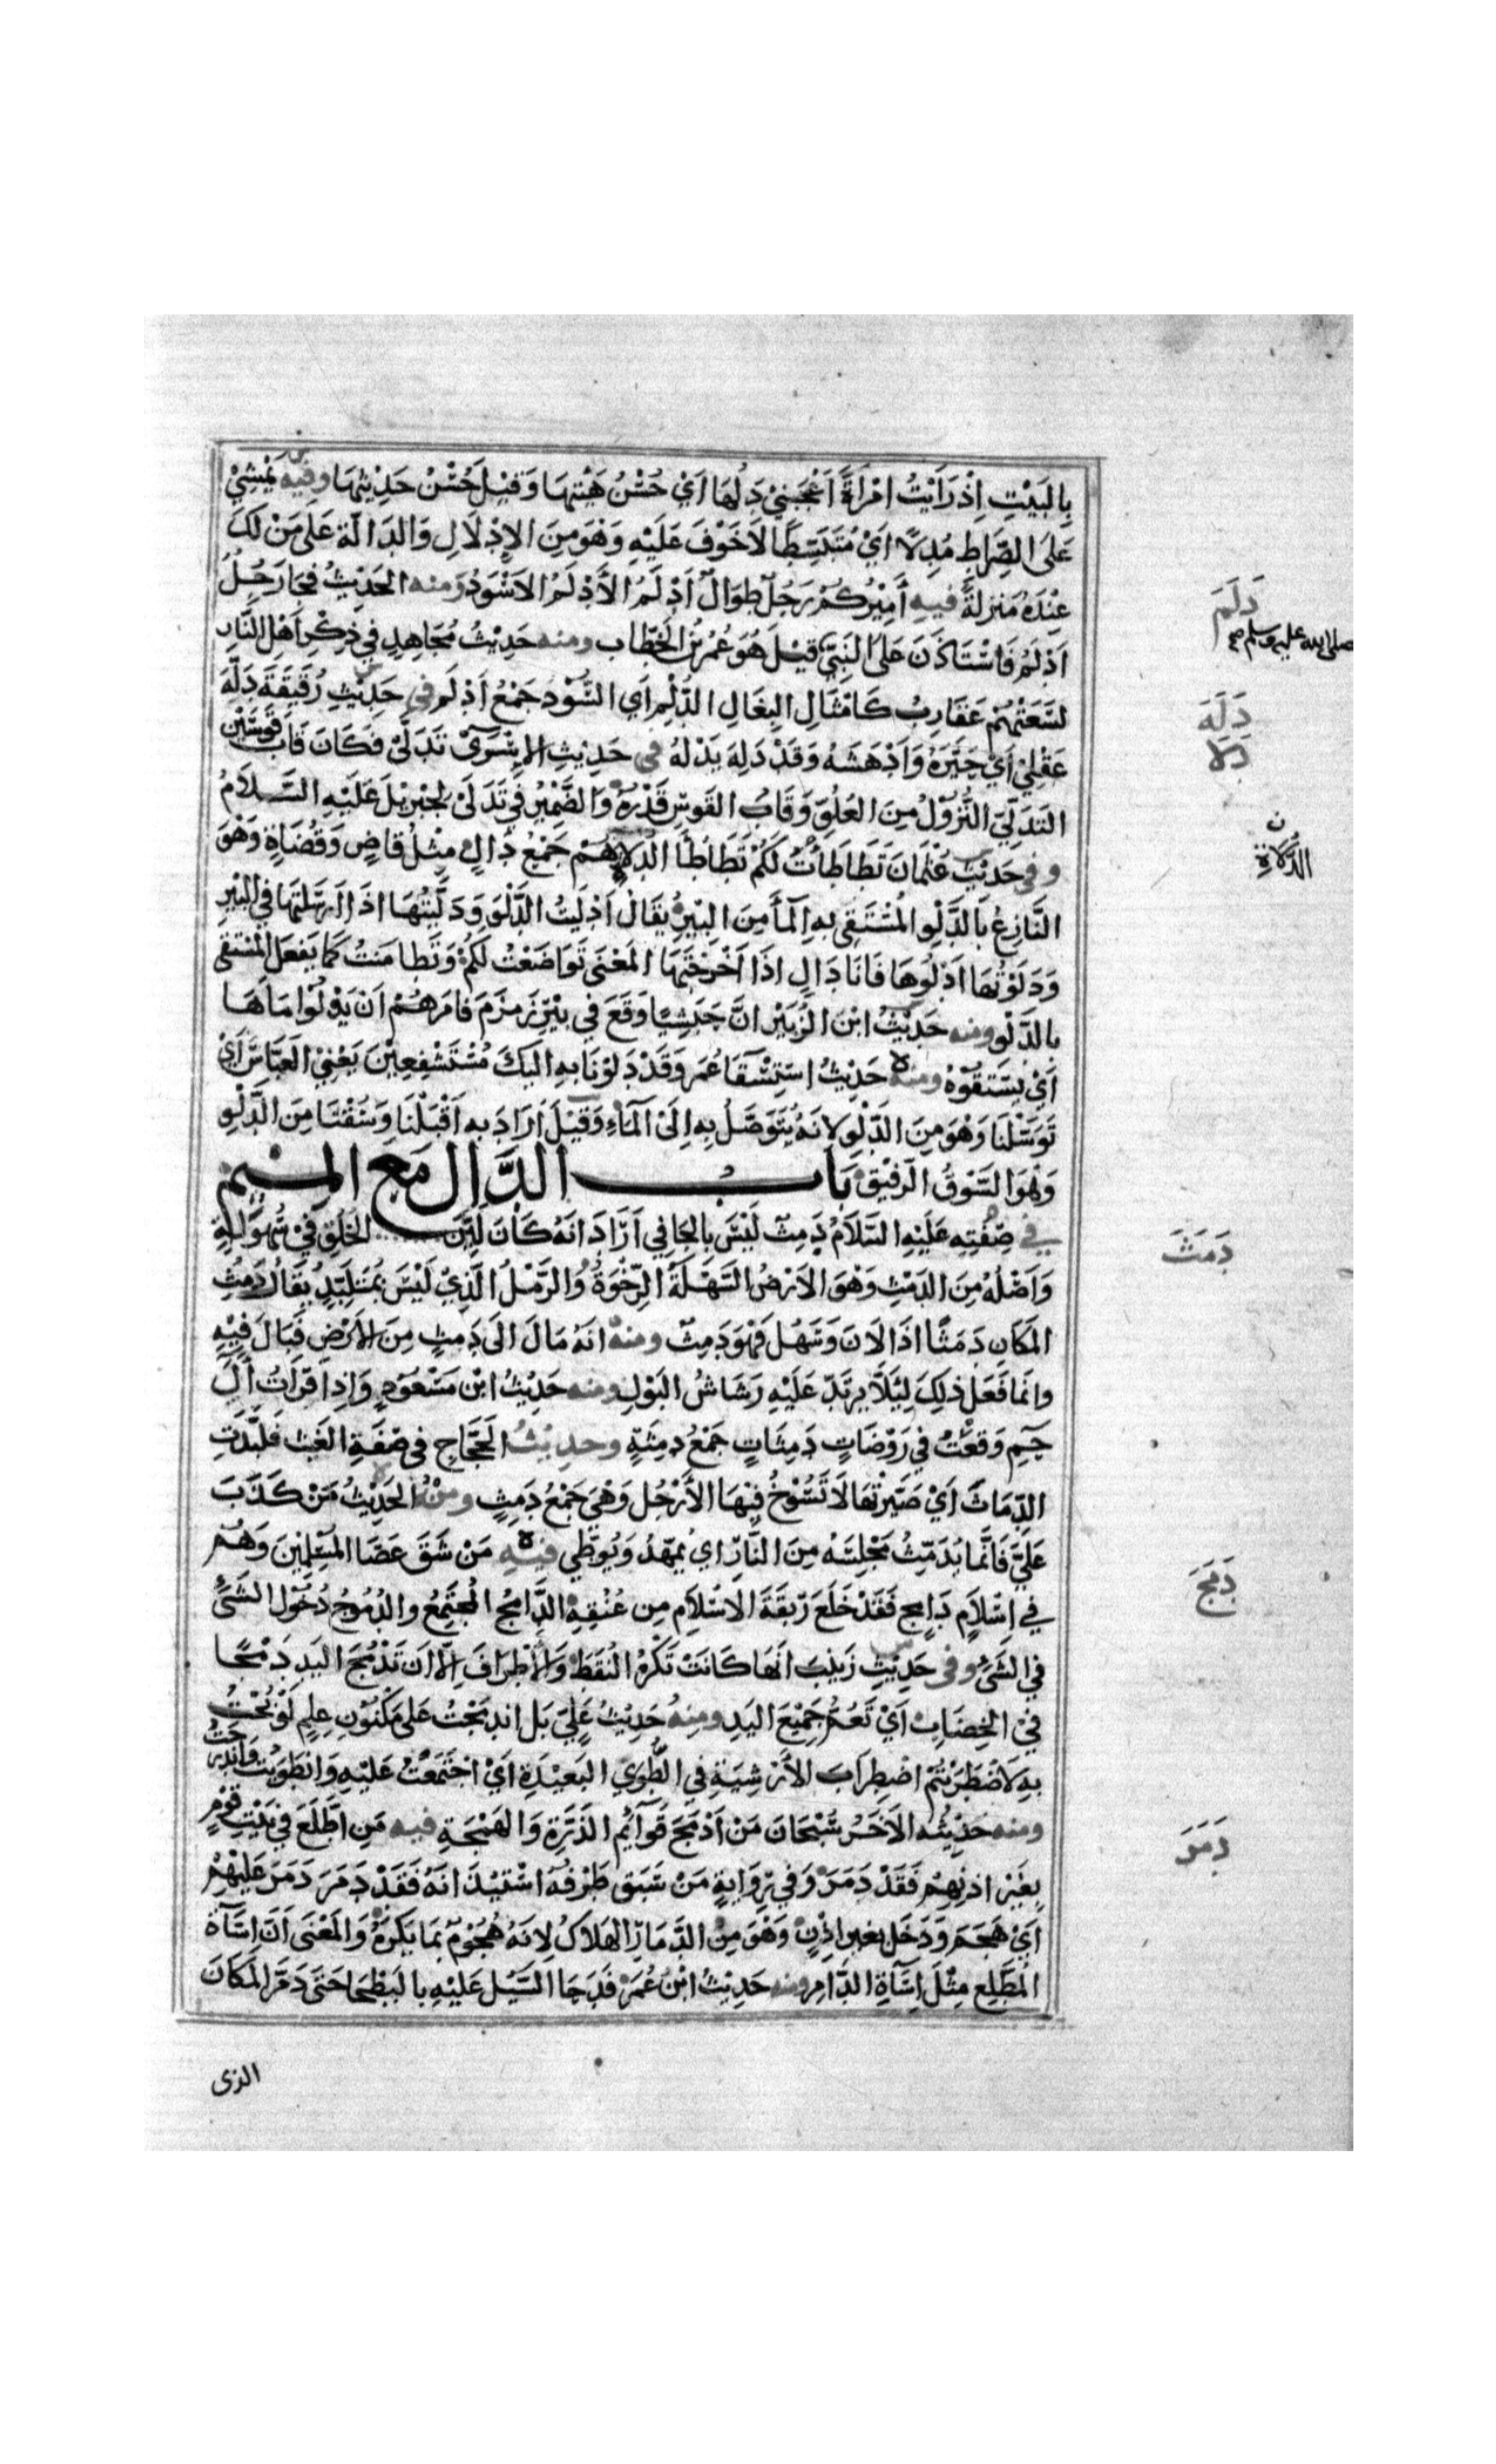 بِالبَيْتِ اِذْ رَأيْتُ امْرَأةً اَعْجَبَنِيْ دَلُّهَا اَيْ حُسْنُ هَيْئتِهَا وَقِيْلَ حُسْنُ حَدِيْثِهَا وفِيْه يَمْشِيْ
عَلىَ الصِّرَاطِ مُدِلّاً اَيْ مُنْبَسِطًا لاَ خَوْفَ عَلَيْهِ وَهْوَ مِنَ الاِدْلَالِ وَالدَالَّة عَلىَ مَنْ لَكَ
عِنْدَهُ مَنزِلَةٌ فيه أَمِيْرُكُمْ رَجُلٌ طوَالٌ اَدْلَمُ الأَدْلَمُ الاَسْوَدُ وَمنه الحَدِيْثُ فجَا رَجُلٌ
اَدْلَمُ فَاسْتَاذَنَ عَلىَ النَبِيِّ قِيْلَ هُوَ عُمرُ بْنُ الخَطّاب ومنه حَدِيْثُ مُجَاهِدٍ فِي ذِكْرِ اَهْلِ النَّارِ
لسَعَتْهُمْ عَقَارِبُ كَامْثَالِ البِغَالِ الدُّلْمِ اَي السُّوْدِ جَمْعُ اَدْلَم فِي حَدِيْثِ رُقَيْقَةَ دَلَّهَ
عَقْلِيْ اَيْ حَيَّرَهُ وَاَدْهَشَهُ وَقَدْ دَلِهَ يَدْلَهُ في حَدِيْثِ الاِسْرَىْ تَدَلّىْ فَكَانَ قَابَ قَوْسَيْنِ
التَدَلّيْ النُّزُوْلُ مِنَ العُلُوِّ وَقَابُ القَوْسِ قَدْرُهُ وَالضَّمِيْرُ فِي تَدَلّىْ لجِبْرِيْلَ عَلَيْهِ السَّلاَمُ
وفي حَدِيْثِ عُثمَانَ تَطَاطَأتُ لَكُمْ تَطَاطأَ الدلاةِ هُمْ جَمْعُ دَالٍ مِثْلُ قَاضٍ وَقُضَاةٍ وَهْوَ
النَّازِعُ بَالدَّلْوِ المُسْتَقِيْ بِهِ المَاَ مِنَ البِيْرِ يُقَالُ اَدْلَيْتُ الدَّلْوَ وَدَلَّيْتُهَا اذَا اَرْسَلْتَهَا فِي البِيْرِ
وَدَلَوْتُهَا اَدْلُوهَا فَانَا دَالٍ اِذَا اَخْرَجْتَهَا المَعْنَى تَوَاضَعْتُ لَكُمْ وَتَطَامَنتُ كَمَا يَفعَلُ المُسْتقي
بالدَّلْوِ ومنه حَدِيْثُ ابْنِ الزُبَيْرِ انَّ حَبَشِيًا وَقَعَ فِي بِيْرِ زَمْزَمَ فَامَرَهُمْ اَنْ يَدْلُوْا مَاَهَا
اَيْ يَسْتَقُوْهُ ومنه حَدِيْثُ اسْتِسْقَا عُمَرَ وَقَدْ دَلَوْنَا بِهِ اليْكَ مُسْتَشْفِعِيْنَ يَعْنِيْ العَبَّاسَ اَيْ
تَوَسَّلْنَا وَهْوَ مِنَ الدَّلْوِ لاِنَهُ يُتَوَصَّلُ بِهِ اِلَىْ الْمَاءِ وَقِيْلَ اَرَادَ بِهِ اَقْبَلْنَا وَسُقْنَا مِنَ الدَّلْوِ
وَهُوَ السَّوْقُ الرَفِيْقُ بَابُ الدَّالِ مَعَ المِيْمِ
في صِفَتِه عَلَيْهِ السَّلاَمُ دَمِثٌ لَيْسَ بِالجَافِي اَرَادَ انَهُ كَانَ لَيِّنَ الخَلْقِ فِيْ سُهُوْلَةٍ
وَاَصْلُهُ مِنَ الدَمْثِ وَهْوَ الاَرْضُ السَهْلَةُ الرِّخْوَةُ وَالرَمْلُ الَّذِيْ لَيْسَ بِمُتَلَبِّدٍ يُقَالُ دَمِثَ
المَكَانِ دَمَثًا اذَا لاَنَ وَسَهُلَ فَهْوَ دَمِثٌ ومنه انَهُ مَالَ الَى دَمِثٍ مِنَ الاَرْضِ فَبَالَ فِيْهِ
وانَّمَا فَعَلَ ذلِكَ لِئَلاَّ يَرتَدَّ عَلَيْهِ رَشَاشُ البَوْلِ ومنه حَدِيْثُ ابْنِ مَسْعُوْدٍ وَاِذَا قَرَأتُ آلَ
حٓمٓ وَقَعْتُ فِي رَوْضَاتٍ دَمِثَاتٍ جَمْعُ دَمِثَةٍ وحديثُ الحَجَّاجِ في صِفَةِ الغَيْثِ فَلَبَّدَتِ
الدِّمَاثَ اَيْ صَيَّرتْهَا لاَ تَسُوْخُ فِيْهَا الأَرْجُل وَهْيَ جَمْعُ دَمِثٍ ومِنْهُ الحَدِيْثُ مَنْ كَذَبَ
عَلَيَّ فَانَّمَا يُدَمِّثُ مَجْلِسَهُ مِنَ النَّارِ اي يُمَهِّدُ وَيُوَطِّي فيه مَنْ شَقَّ عَصَا المُسْلِمِينَ وَهُم
فِي اِسْلاَمٍ دَامِجٍ فَقَدْ خَلَعَ رَبْقَةَ الاسْلاَمِ مِن عُنُقِهِ الدَّامِجُ المُجْتَمِعُ والدُمُوجُ دُخُوْلُ الشَيْءِ
فِي الشَيْءِ وفي حَدِيْثِ زَيْنَبَ انَهَا كَانَتْ تَكْرَهُ النُقَطَ وَالاطْرَافَ اِلاَّ اَن تَدْمُجَ اليَدِ دَمْجًا
فِيْ الخِضَابِ اَيْ تَعُمُّ جَمِيْعَ اليَدِ ومِنهُ حَدِيْثُ عَلِيٍّ بَلِ اندَمَجْتُ عَلىَ مَكْنُوْنِ عِلمٍ لَوْ بُحْتُ
بِهِ لاَضْطَرَبْتُمْ اضطِرَابَ الأَرْشِيَةِ فِي الطَّوِيّ البَعِيْدَةِ اَيْ اجْتَمَعْتُ عَلَيْهِ وَانْطَوَيْتُ وَاندَرجْتُ
ومنه حَدِيْثُه الاَخَرُ سُبْحَانَ مَنْ اَدْمَجَ قَوَائِمَ الذَرَّةِ وَالهَمْجَةِ فيه مَنِ اطَّلَعَ فِي بَيْتِ قَوْمٍ
بِغَيْرِ اذنِهِمْ فَقَدْ دَمَرَ وَفِي رِوَايةٍ مَنْ سَبَقَ طَرْفُهُ اسْتيْذَانَهُ فَقَدْ دَمَرَ دَمَرَ عَلَيْهِمْ
اَيْ هَجَمَ وَدَخَلَ بِغَيرِ اِذْنٍ وَهْوَ مِنَ الدَّمَارِ الهَلاَكُ لاِنَهُ هُجُوْمٌ بِمَا يَكرَهُ وَالمَعْنَى اَنَّ اِسَاَةَ
المُطَّلِعِ مِثْلُ اِسَاَةِ الدَّامِرِ ومنه حَدِيْثُ ابْنِ عُمَرَ قَدْ جَا السَّيْلُ عَلَيْهِ بالبَطْحَا حَتَى دَمَّرَ المَكَانَ
الذى
دَلَمَ
صلى الله عليه وسلم صح
دَلَهَ
دَلا
ن
الدُّلاَةِ
دَمَثَ
دَمَجَ
دَمَرَ